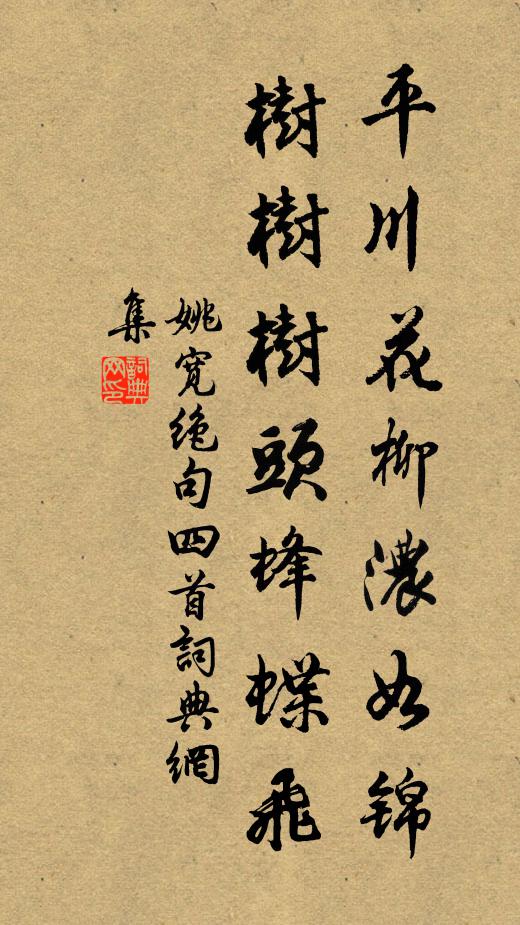 平川花柳濃如錦
樹樹樹頭蜂蝶飛
姚寬絶句四首詞典網
集
詞典网印